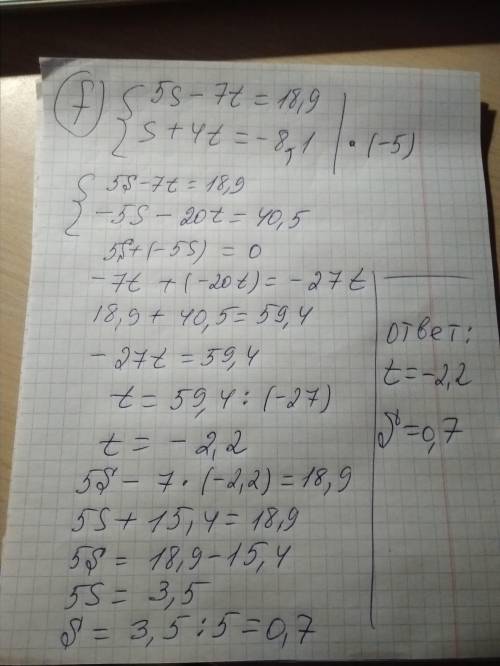 f) { 5S - 7t = 18,9
S + 4t = -8,1 | · (-5)
{ 5S - 7t = 18,9
-5S - 20t = 40,5
5S + (-5S) = 0
-7t + (-20t) = -27t
18,9 + 40,5 = 59,4
-27t = 59,4
t = 59,4 : (-27)
t = -2,2
5S - 7 · (-2,2) = 18,9
5S + 15,4 = 18,9
5S = 18,9 - 15,4
5S = 3,5
S = 3,5 : 5 = 0,7
ответ:
t = -2,2
S = 0,7